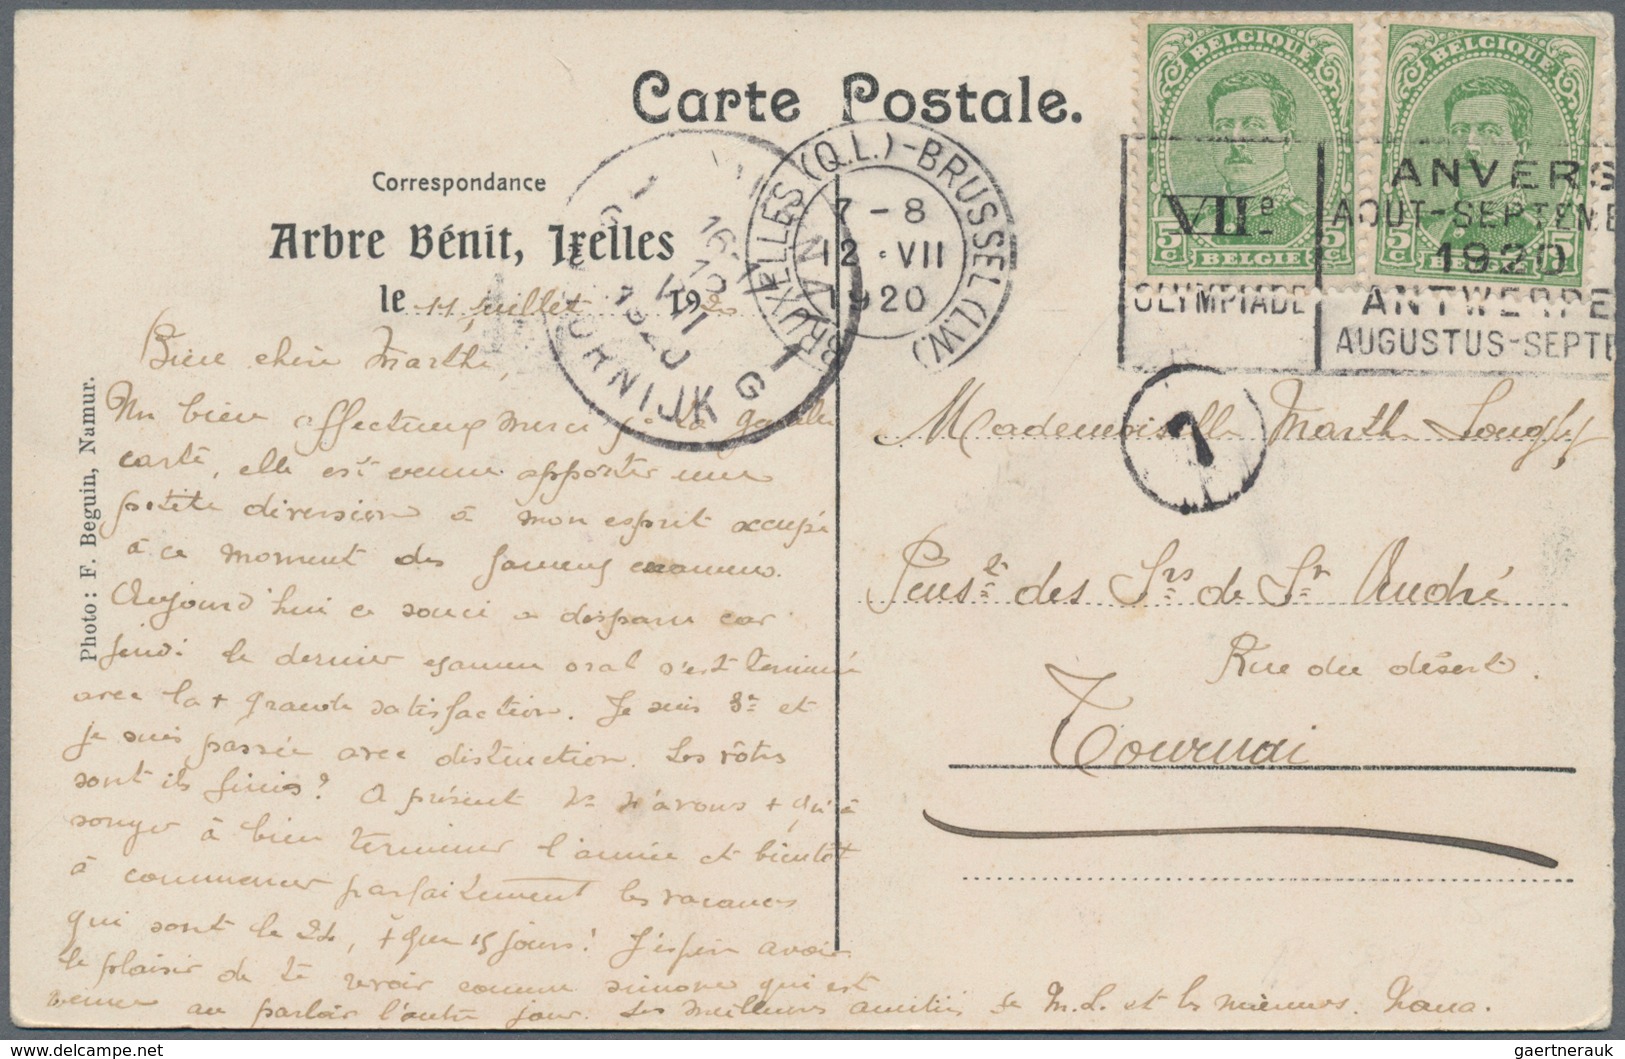 Carte Postale.
Correspondance
Arbre Bénit, Ixelles
le 11 juillet 1920
Photo: F. Beguin, Namur.
BRUXELLES (Q.L.) - BRUSSEL (L.W.)
7 - 8
12 · VII
1920
DOORNIJK G
1920
BELGIQUE
5c
5c
BELGIE
BELGIQUE
5c
5c
BELGIE
VIIe
OLYMPIADE
ANVERS
AOUT-SEPTEMB
1920
ANTWERPE
AUGUSTUS-SEPTE
7
Bien chère Marthe,
Un bien affectueux merci pr ta gentille
carte, elle est venue apporter une
petite diversion à mon esprit occupé
à ce moment des fameux examens.
Aujourd'hui ce souci a disparu car
jeudi le dernier examen oral s'est terminé
avec la + grande satisfaction. Je suis 3e et
je suis passée avec distinction. Les vôtres
sont ils finis? A présent ns n'avons + qu'à
songer à bien terminer l'année et bientôt
à commencer parfaitement les vacances
qui sont le 24, + que 15 jours! J'espère avoir
le plaisir de te revoir comme Simone qui est
venue au parloir l'autre jour. Les meilleures amitiés de M.L. et les miennes.
Mademoiselle Marthe
Penst des Srs de St André
Rue du désert.
Tournai
gaertnerauk